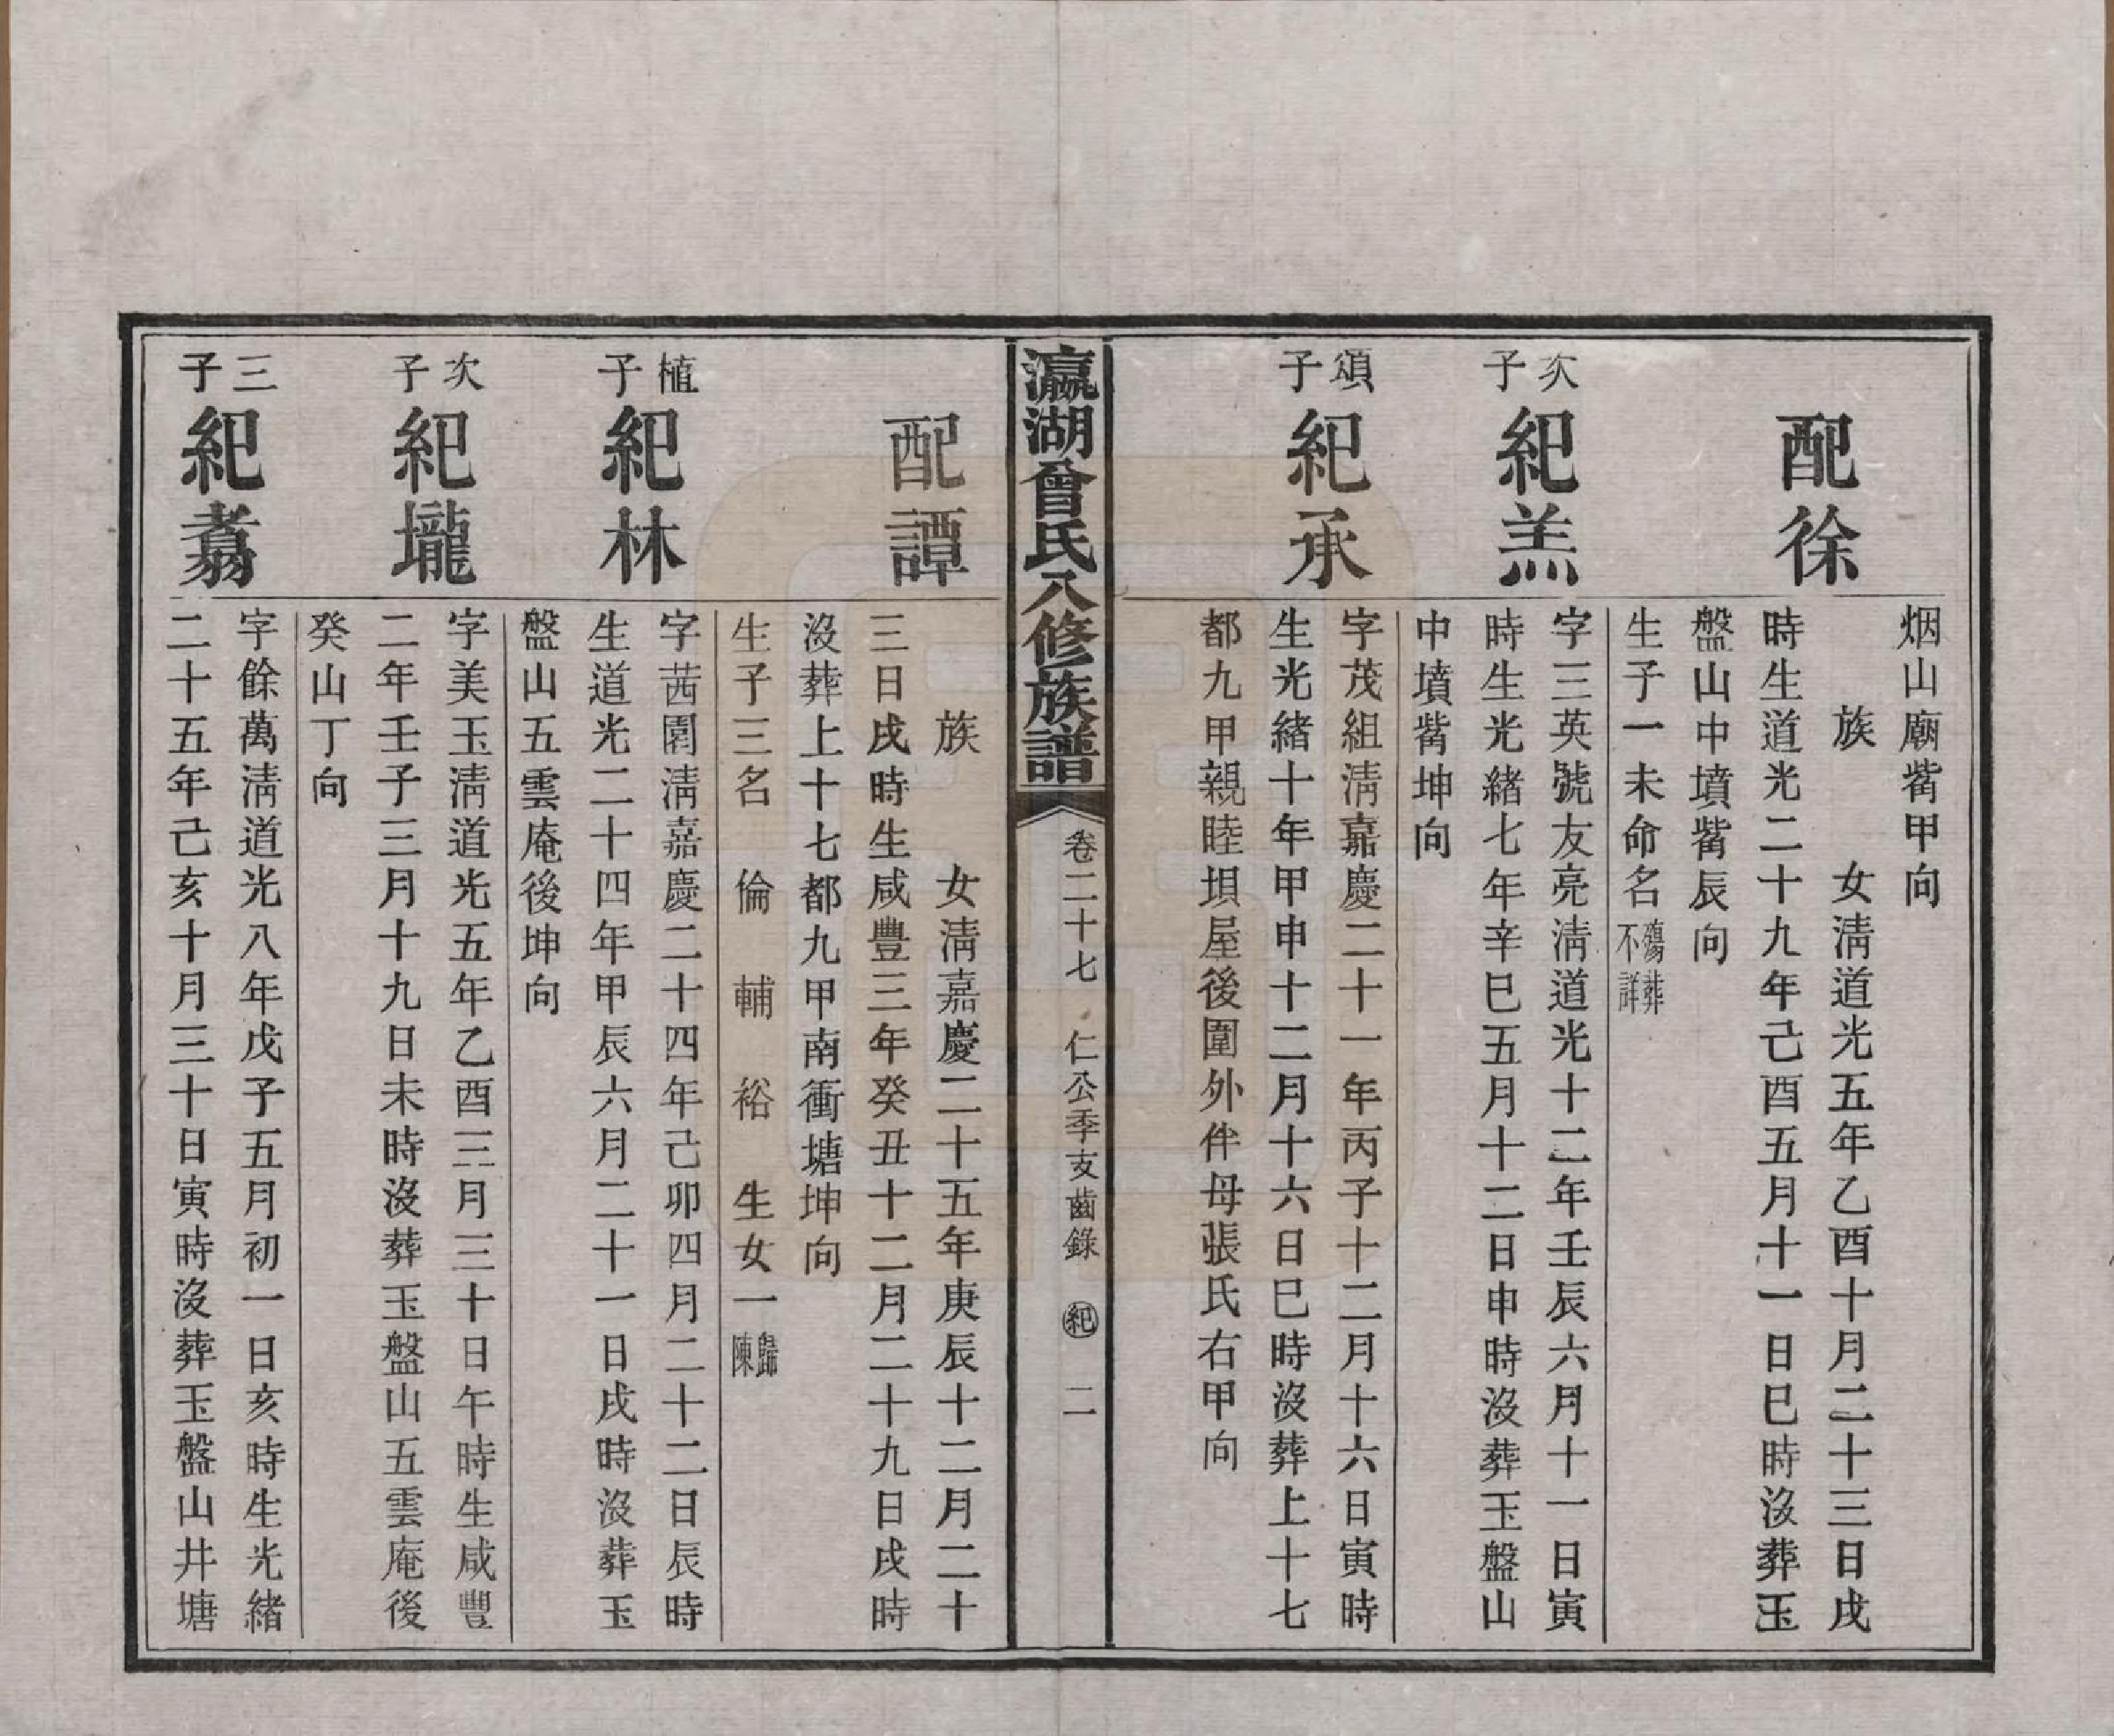 烟山廟觜甲向
配徐
族　女淸道光五年乙酉十月二十三日戌
時生道光二十九年己酉五月十一日巳時沒葬玉
盤山中墳觜辰向
生子一未命名殤葬不詳
次子紀羔
字三英號友亮淸道光十二年壬辰六月十一日寅
時生光緖七年辛巳五月十二日申時沒葬玉盤山
中墳觜坤向
頌子紀承
字茂組淸嘉慶二十一年丙子十二月十六日寅時
生光緖十年甲申十二月十六日巳時沒葬上十七
都九甲親睦垻屋後圍外伴母張氏右甲向
瀛湖曾氏八修族譜
卷二十七　仁公季支齒錄　紀　二
配譚
族　女淸嘉慶二十五年庚辰十二月二十
三日戌時生咸豐三年癸丑十二月二十九日戌時
沒葬上十七都九甲南衝塘坤向
生子三名　倫　輔　裕　生女一歸陳
植子紀林
字茜園淸嘉慶二十四年己卯四月二十二日辰時
生道光二十四年甲辰六月二十一日戌時沒葬玉
盤山五雲庵後坤向
次子紀壠
字美玉淸道光五年乙酉三月三十日午時生咸豐
二年壬子三月十九日未時沒葬玉盤山五雲庵後
癸山丁向
三子紀翥
字餘萬淸道光八年戊子五月初一日亥時生光緖
二十五年己亥十月三十日寅時沒葬玉盤山井塘